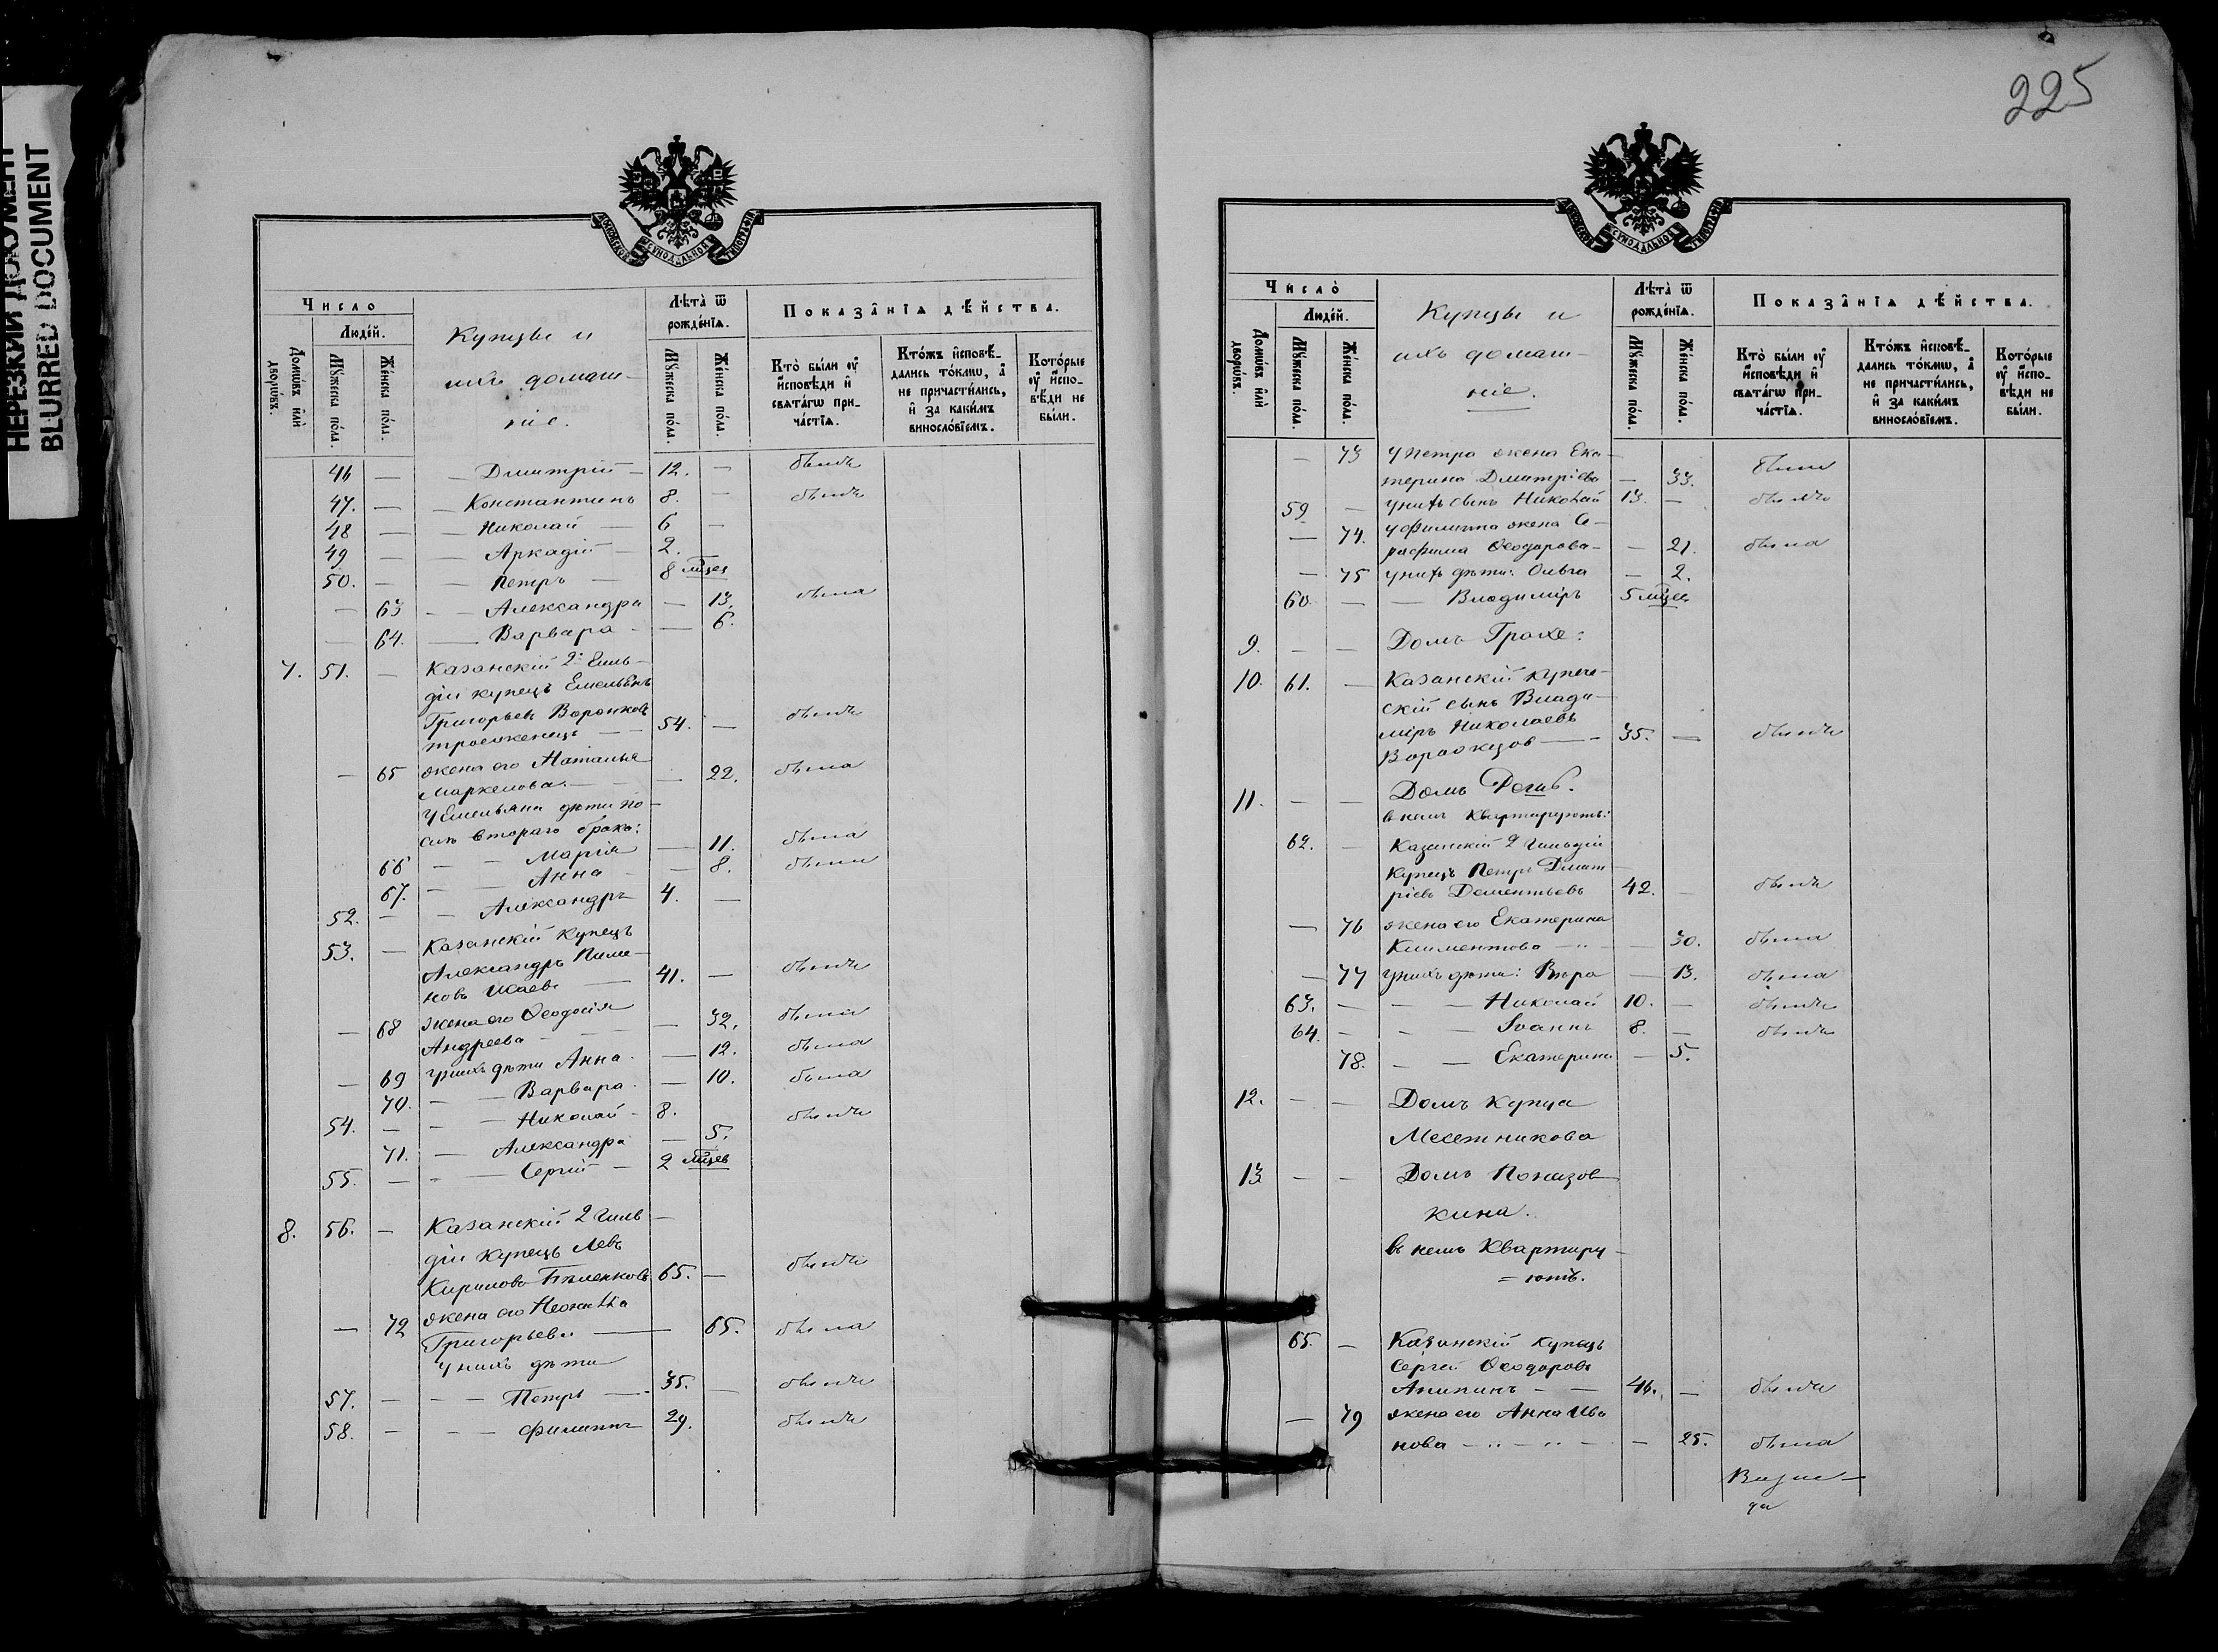 НЕРЕЗКИЙ ДОКУМЕНТ
BLURRED DOCUMENT
МОСКОВСКОЙ СѴНОДАЛЬНОЙ ТИПОГРАФІИ
Число
Людей.
Домѡвъ или дворѡвъ.
Мꙋжеска пола.
Женска пола.
Купцы и
ихъ домаш-
ніе.
Лѣта ѿ рожденїѧ.
Мꙋжеска пола.
Женска пола.
Показанїѧ дѣйства.
Кто были оу исповѣди и свѧтагѡ причастїѧ.
Ктожъ исповѣдались токмѡ, а не причастились, и за какимъ винословїемъ.
Которые оу исповѣди не были.
46 — — Дмитрій — 12. — былъ
47. — — Константинъ 8. — былъ
48 — — Николай — 6 —
49 — — Аркадій — 2.
50. — — Петръ — 8 мцев
— 63 — Александра — 13. была
— 64. — Варвара — — 6.
7. 51. — Казанскій 2й Гиль-
діи купецъ Емельянъ
Григорьевъ Воронковъ
троеженецъ — 54. — былъ
— 65 жена его Наталья
Маркелова. — — 22. была
У Емельяна дѣти по-
слѣ втораго брака:
66 — — Марія — 11. была
67. — — Анна — 8. была
52. — — Александръ 4. —
53. — Казанскій купецъ
Александръ Пиме-
новъ Исаевъ — 41. — былъ
— 68 жена его Ѳеодосія
Андреева — — 32. была
— 69 у нихъ дѣти Анна — 12. была
70. — — Варвара. — 10. была
54. — — Николай — 8. былъ
71. — Александра — 5.
55. — — Сергій — 2 мцев
8. 56. — Казанскій 2 Гиль-
діи купецъ Левъ
Кириловъ 65. — былъ
— 72 жена его
Григорьева — 65. была
у нихъ дѣти
57. — — — Петръ — 35. — былъ
58. — — — Филиппъ 29. былъ
225
МОСКОВСКОЙ СѴНОДАЛЬНОЙ ТИПОГРАФІИ
Число
Людей.
Домѡвъ или дворѡвъ.
Мꙋжеска пола.
Женска пола.
Купцы и
ихъ домаш-
ніе.
Лѣта ѿ рожденїѧ.
Мꙋжеска пола.
Женска пола.
Показанїѧ дѣйства.
Кто были оу исповѣди и свѧтагѡ причастїѧ.
Ктожъ исповѣдались токмѡ, а не причастились, и за какимъ винословїемъ.
Которые оу исповѣди не были.
— 73 У Петра жена Ека-
терина Дмитріева — 33. была
59 — у нихъ сынъ Николай 13. — былъ
— 74. У Филиппа жена Се-
рафима Ѳеодорова — — 21. была
— 75 у нихъ дѣти: Ольга — 2.
60. — — Владиміръ 5 мцев
9. — — Домъ Грахе:
10. 61. — Казанскій купече-
скій сынъ Влади-
міръ Николаевъ
Ворожцов — 35. — былъ
11. — — Домъ
въ немъ квартируютъ:
62. — Казанскій 2 Гильдіи
купецъ Петръ Дмит-
ріевъ Дементьевъ 42. — былъ
— 76 жена его Екатерина
Климентова — — 30. была
— 77 у нихъ дѣти: Вѣра — 13. была
63. — — — Николай 10. — былъ
64. — — — Іоаннъ 8. — былъ
78. — — Екатерина — 5.
12. — — Домъ купца
Месетникова
13 — — Домъ Понизов-
кина.
въ немъ квартиру-
= ютъ.
65. — Казанскій купецъ
Сергей Ѳеодоровъ
— — 46. — былъ
— 79 жена его Анна Ива
нова — — — 25. была